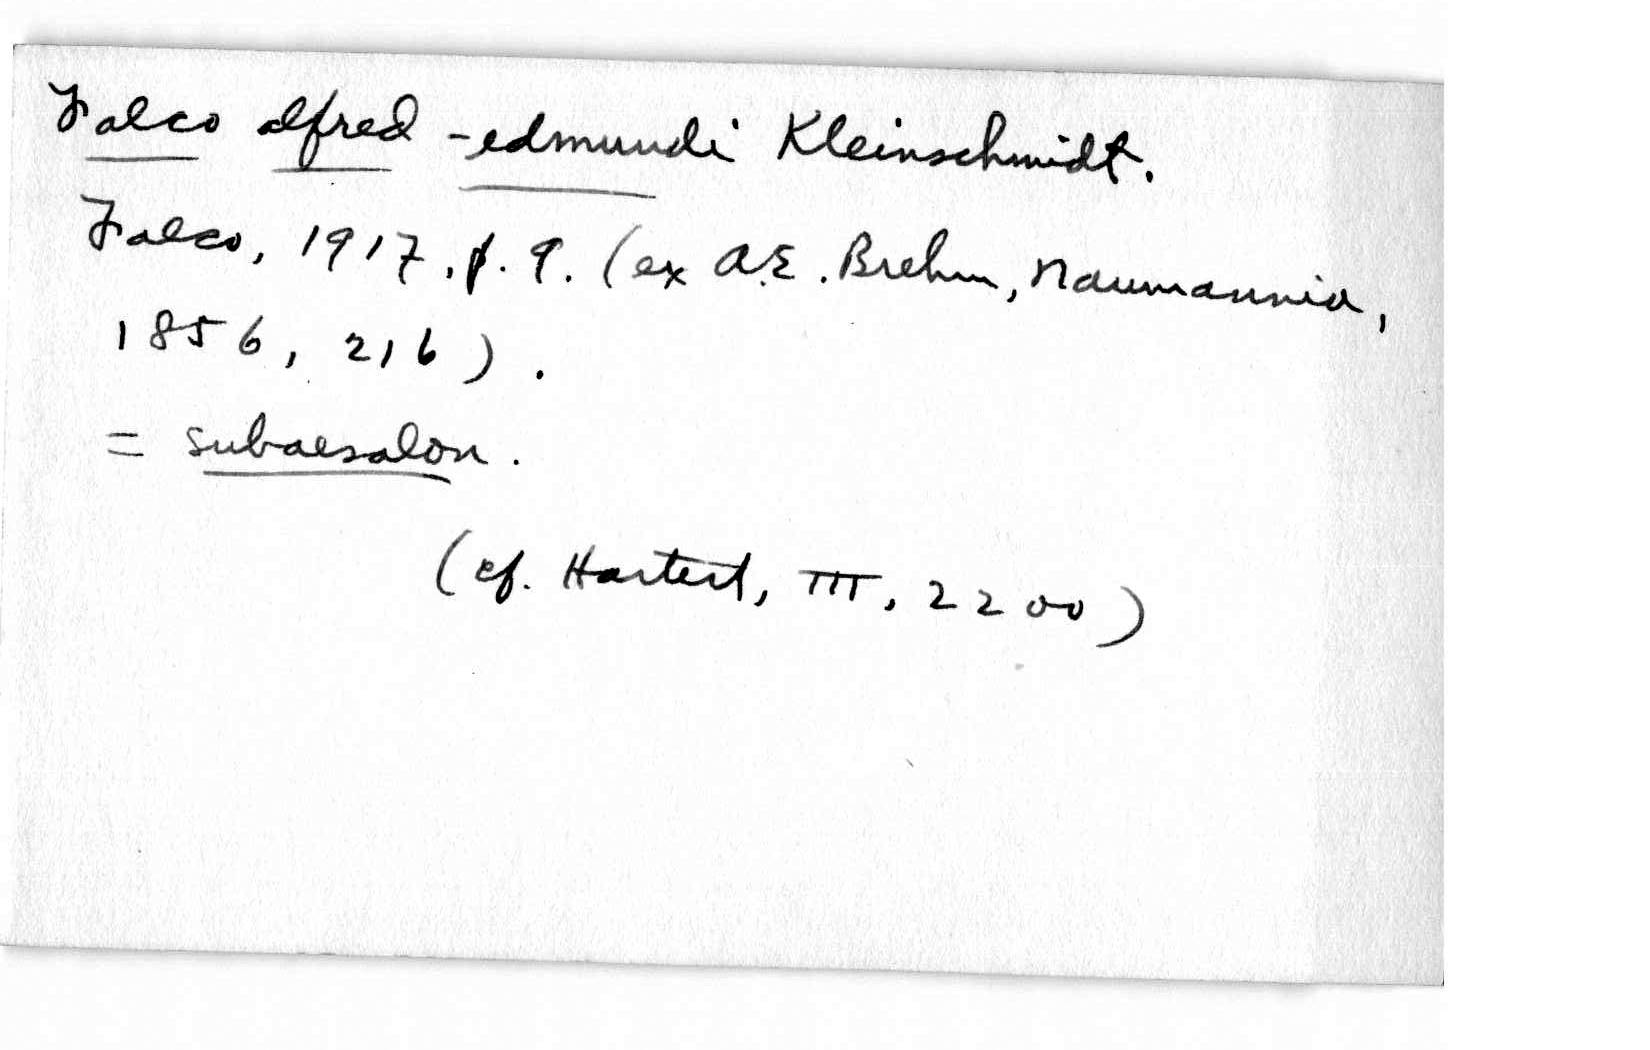 Falco alfred-edmundi Kleinschmidt.
Falco, 1917, p. 9. (ex A.E. Brehm, Naumannia,
1856, 216).
= subaesalon.
(cf. Hartert, III, 2200)